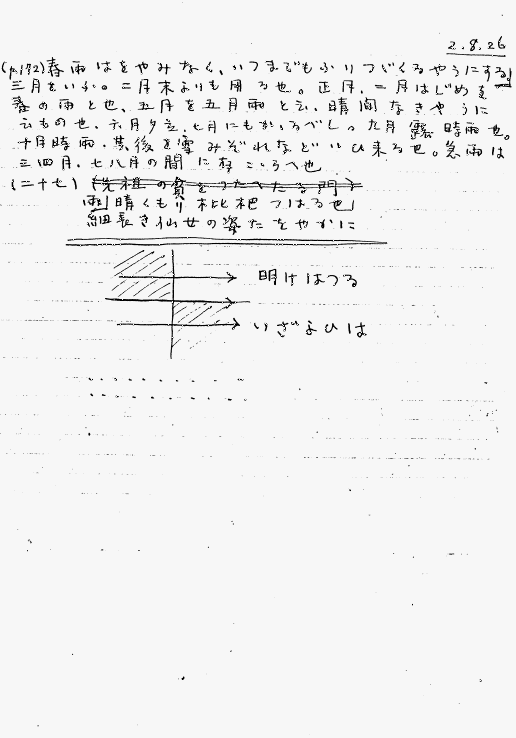 2.8.26
(p.172)春雨はをやみなく、いつまでもふりつゞくるやうにする、
三月をいふ。二月末よりも用る也。正月、二月はじめを
春の雨と也、五月を五月雨と云、晴間なきやうに
云ものも也、六月夕立、七月にもかゝるべし。九月露時雨也。
十月時雨、其後を雪みぞれなどいひ来る也。急雨は
三四月、七八月の間に有こゝろへ也
(二十七) (先祖の貧をつたへたる門)
雨晴くもり枇杷つはる也
細長き仙女の姿たをやかに
明けはつる
いざよひは